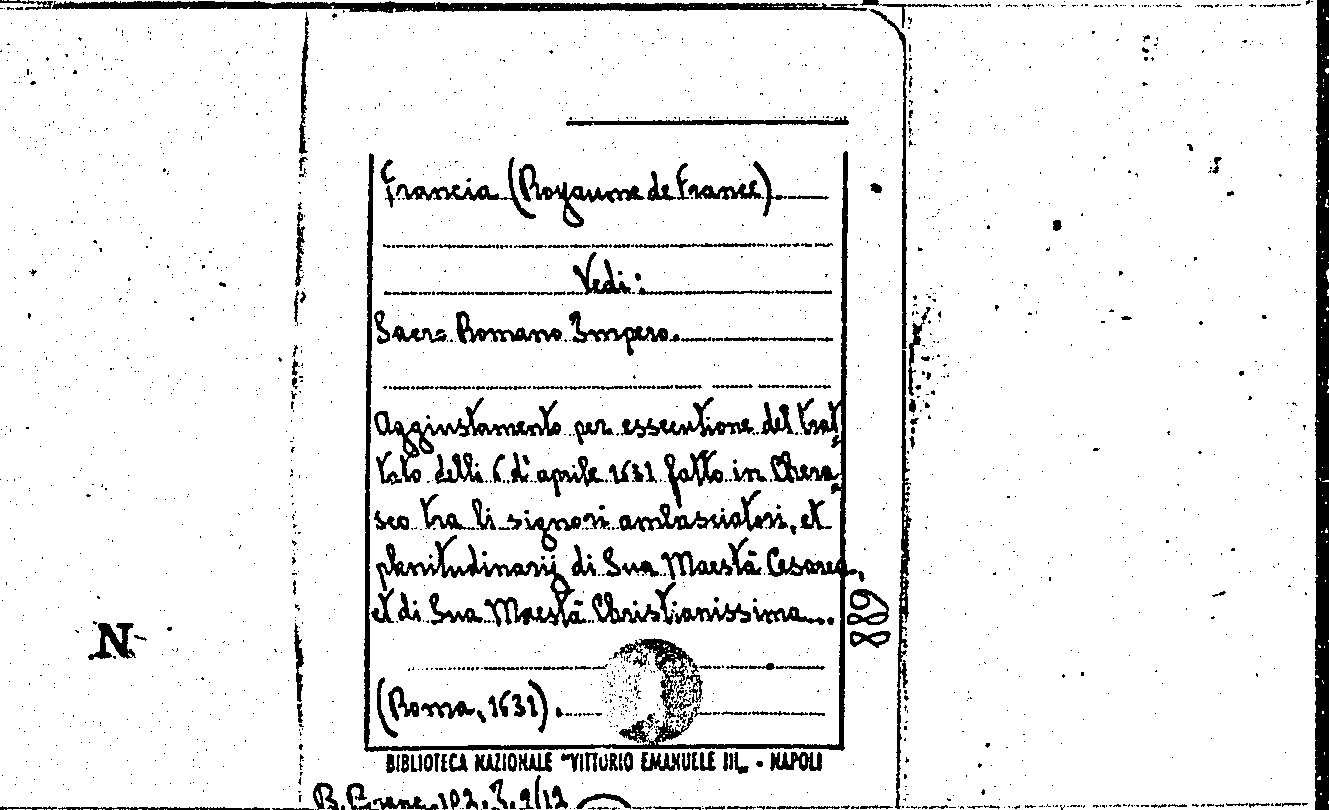 Francia (Royaume de France).
Vedi:
Sacro Romano Impero.
Aggiustamento per essecutione del trat-
tato delli 6 d'aprile 1631 fatto in Chera-
sco tra li signori ambasciatori, et
plenitudinarij di Sua Maestà Cesarea,
et di Sua Maestà Christianissima...
(Roma, 1631).
BIBLIOTECA NAZIONALE "VITTORIO EMANUELE III„ - NAPOLI
889
N